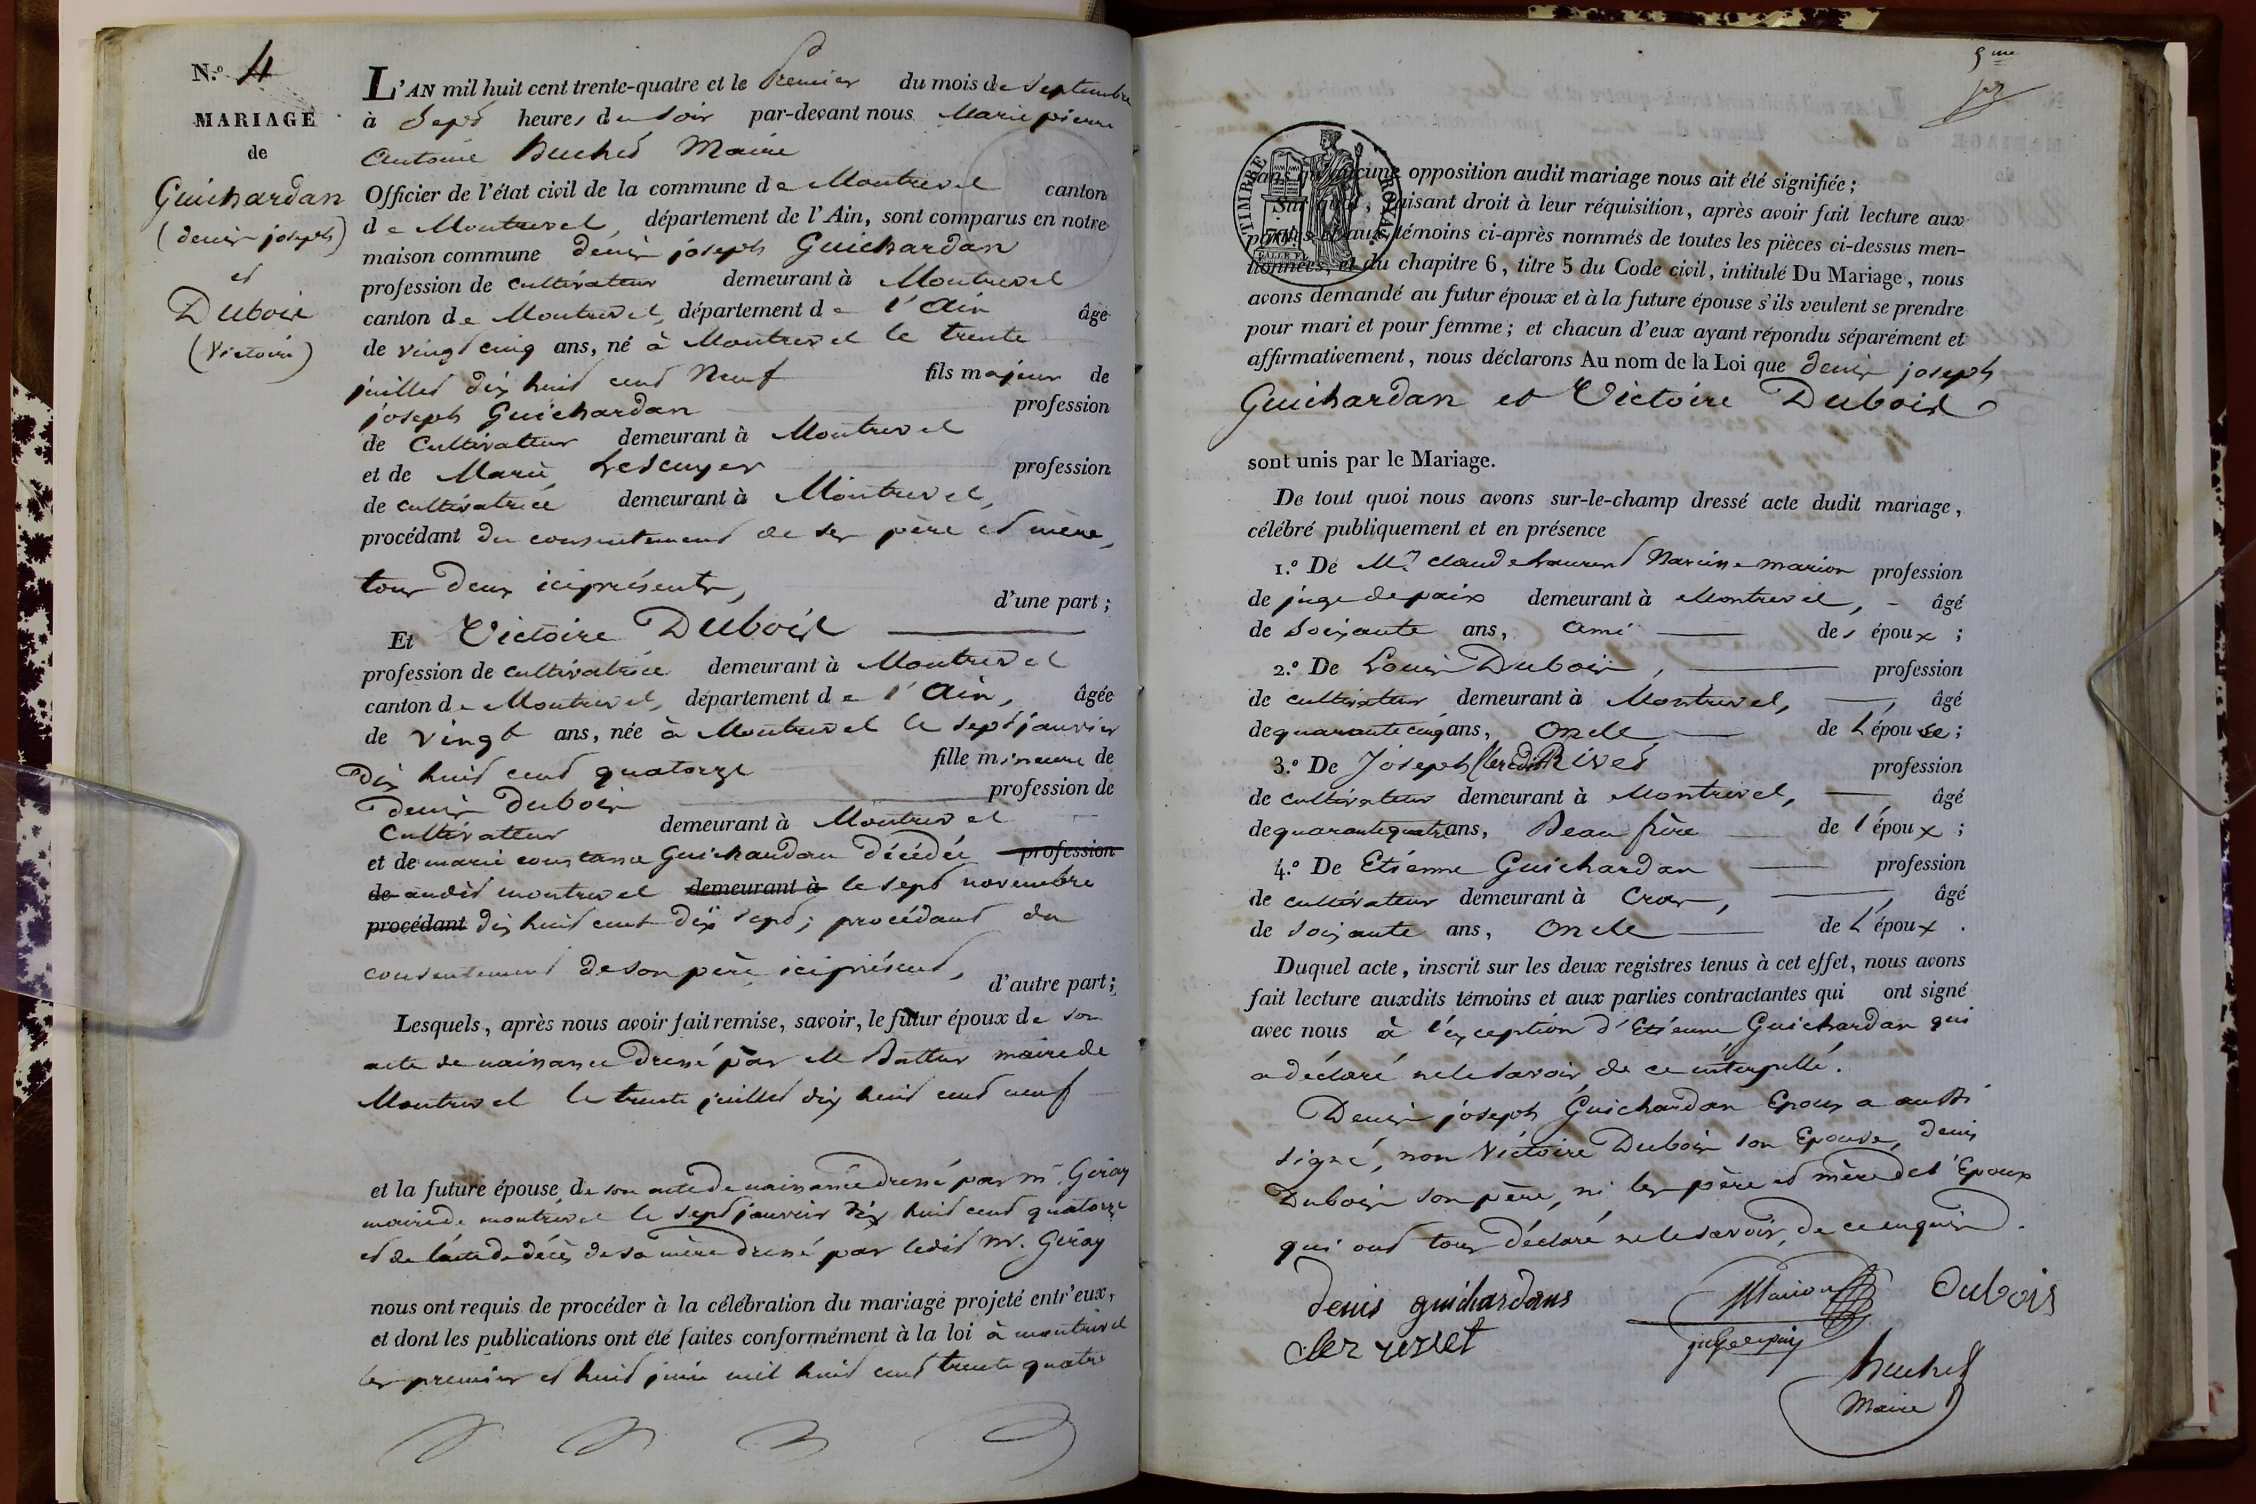 N.o 4
MARIAGE
de
Guichardan
(denis joseph)
et
Dubois
(Victoire)
L'AN mil huit cent trente-quatre et le Premier du mois de Septembre
à Sept heures du soir par-devant nous Marie pierre
Antoine Buchet Maire
Officier de l'état civil de la commune de Montrevel canton
de Montrevel, département de l'Ain, sont comparus en notre
maison commune denis joseph Guichardan
profession de cultivateur demeurant à Montrevel
canton de Montrevel, département de l'Ain âgé
de vingt cinq ans, né à Montrevel le trente
juillet dix huit cent Neuf fils majeur de
joseph Guichardan profession
de Cultivateur demeurant à Montrevel
et de Marie Lescuyer profession
de cultivatrice demeurant à Montrevel,
procédant du consentement de ses père et mère,
tous deux ici présents, d'une part ;
Et Victoire Dubois
profession de cultivatrice demeurant à Montrevel
canton de Montrevel, département de l'Ain, âgée
de vingt ans, née à Montrevel le sept janvier
dix huit cent quatorze fille mineure de
denis dubois profession de
Cultivateur demeurant à Montrevel
et de marie constance Guichardan décédée profession
de audit montrevel demeurant à le sept novembre
procédant dix huit cent dix sept ; procédant du
consentement de son père ici présent, d'autre part ;
Lesquels, après nous avoir fait remise, savoir, le futur époux de son
acte de naissance dressé par M Battur maire de
Montrevel le trente juillet dix huit cent neuf
et la future épouse, de son acte de naissance dressé par mr. Géray
maire de montrevel le sept janvier dix huit cent quatorze
et de l'acte de décès de sa mère dressé par ledit Mr. Géray
nous ont requis de procéder à la célébration du mariage projeté entr'eux,
et dont les publications ont été faites conformément à la loi à montrevel
les premier et huit juin mil huit cent trente quatre
5me
TIMBRE ROYAL
sans qu'aucune opposition audit mariage nous ait été signifiée ;
Sur quoi, faisant droit à leur réquisition, après avoir fait lecture aux
parties et aux témoins ci-après nommés de toutes les pièces ci-dessus men-
tionnées, et du chapitre 6, titre 5 du Code civil, intitulé Du Mariage, nous
avons demandé au futur époux et à la future épouse s'ils veulent se prendre
pour mari et pour femme ; et chacun d'eux ayant répondu séparément et
affirmativement, nous déclarons Au nom de la Loi que denis joseph
Guichardan et Victoire Dubois
sont unis par le Mariage.
De tout quoi nous avons sur-le-champ dressé acte dudit mariage,
célébré publiquement et en présence
1.o De Mr claude Laurent Narcisse marion profession
de juge de paix demeurant à Montrevel, âgé
de soixante ans, ami des époux ;
2.o De Louis Dubois, profession
de cultivateur demeurant à Montrevel, âgé
de quarante cinq ans, Oncle de l'épouse ;
3.o De Joseph Clerc dit Rivet profession
de cultivateur demeurant à Montrevel, âgé
de quarante quatre ans, Beau frère de l'époux ;
4.o De Etienne Guichardan profession
de cultivateur demeurant à Cras, âgé
de soixante ans, Oncle de L'époux.
Duquel acte, inscrit sur les deux registres tenus à cet effet, nous avons
fait lecture auxdits témoins et aux parties contractantes qui ont signé
avec nous à l'exception d'Etienne Guichardan qui
a déclaré ne le savoir, de ce interpellé.
Denis joseph Guichardan Epoux a aussi
signé, non Victoire Dubois son Epouse, denis
Dubois son père, ni les père et mère de l'Epoux
qui ont tous déclaré ne le savoir, de ce enquis.
denis guichardans Marion Dubois
juge de paix
Buchet
Maire